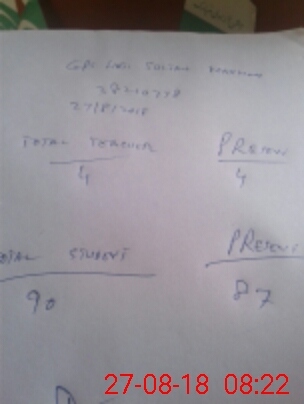 GPS
27/8/2018
TOTAL TEACHER PRESENT
4 4
TOTAL STUDENT PRESENT
90 87
27-08-18 08:22